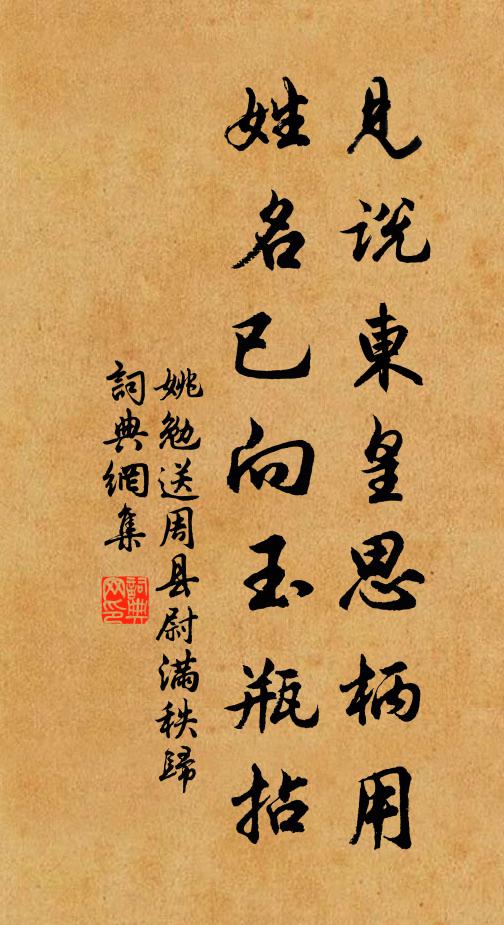 見說東皇思柄用
姓名已向玉瓶拈
姚勉送周县尉滿秩歸
詞典網集
詞典网印